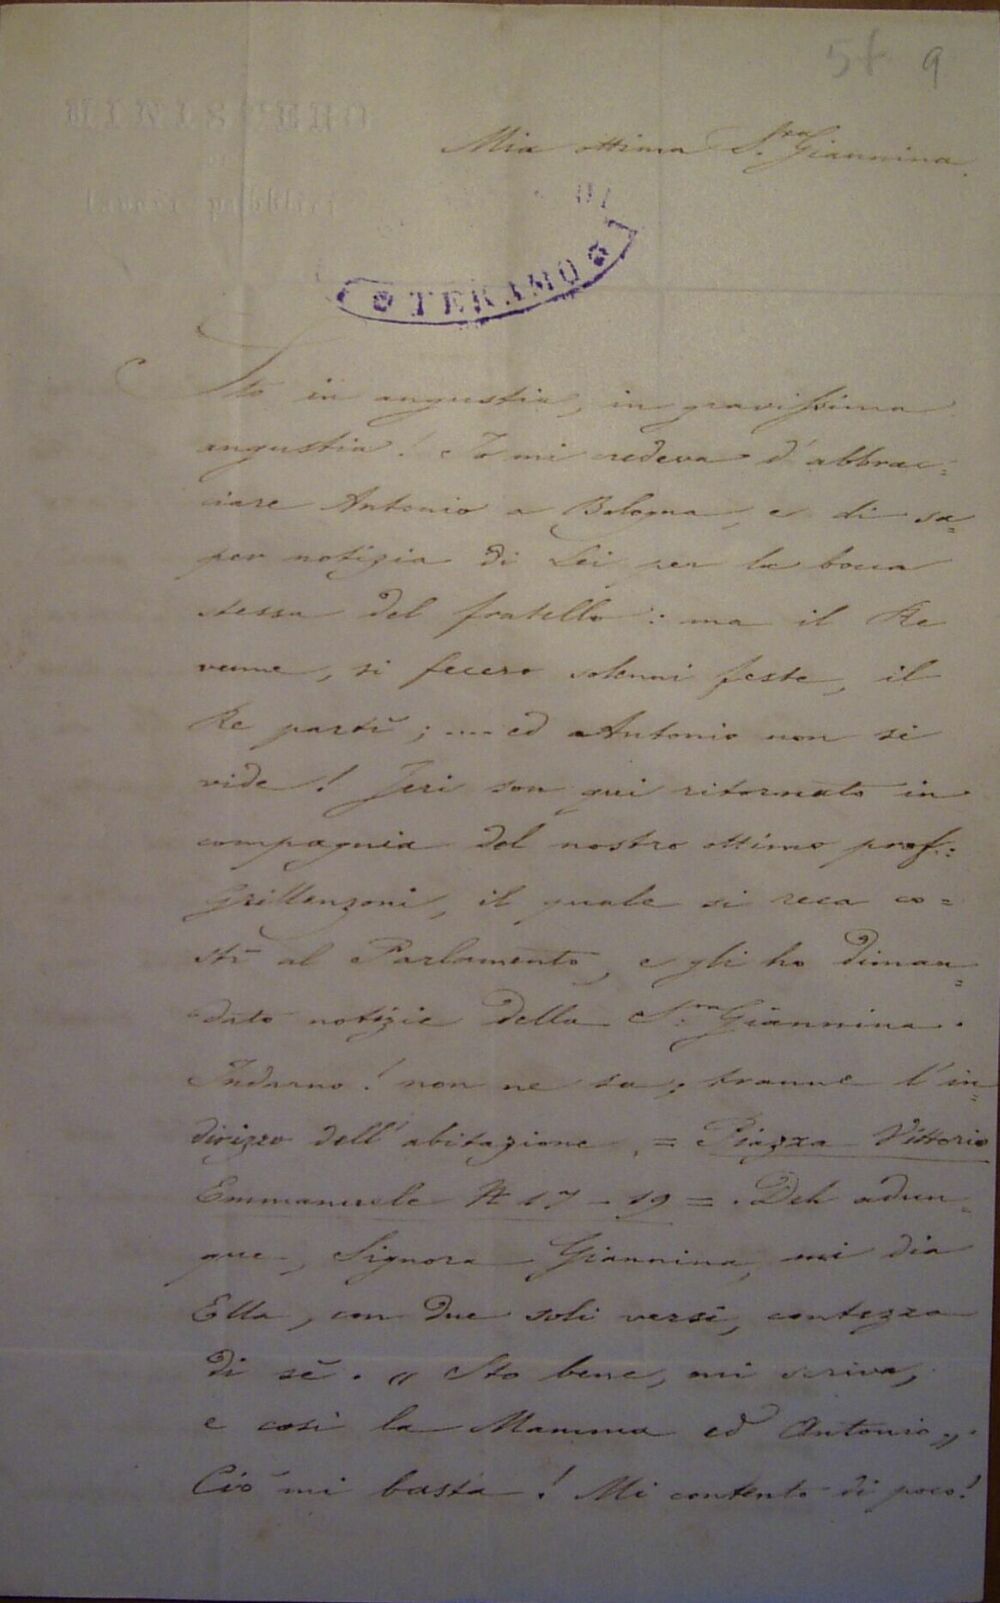 5t 9
MINISTERO
lavori pubblici
Mia ottima S.ra Giannina.
DI
TERAMO
Sto in angustia, in gravissima
angustia! Io mi credeva d'abbrac=
ciare Antonio a Bologna, e di sa=
per notizia di Lei per la bocca
stessa del fratello: ma il Re
venne, si fecero solenni feste, il
Re partì; .... ed Antonio non si
vide! Jeri son qui ritornato in
compagnia del nostro ottimo prof.:
Grillenzoni, il quale si reca co=
stì al Parlamento, e gli ho diman=
dato notizie della S.ra Giannina.
Indarno! non ne sa, tranne l'in=
dirizzo dell'abitazione, = Piazza Vittorio
Emmanuele N 17 - 19 =. Deh adun=
que, Signora Giannina, mi dia
Ella, con due soli versi, contezza
di sè. „ Sto bene, mi scriva,
e così la Mamma ed Antonio „.
Ciò mi basta! Mi contento di poco!